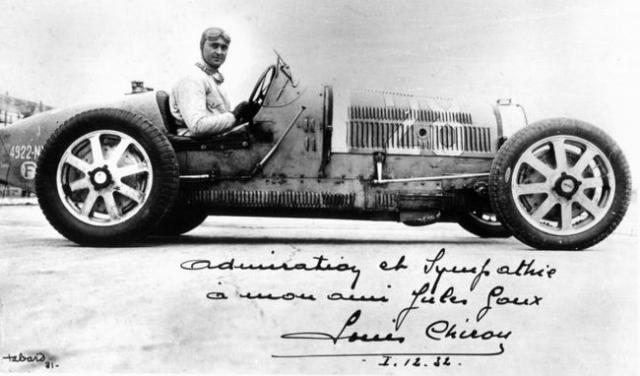 4922-N
F
Admiration et Sympathie
à mon ami Jules Goux
Louis Chiron
I.12.32.
tabard
31-